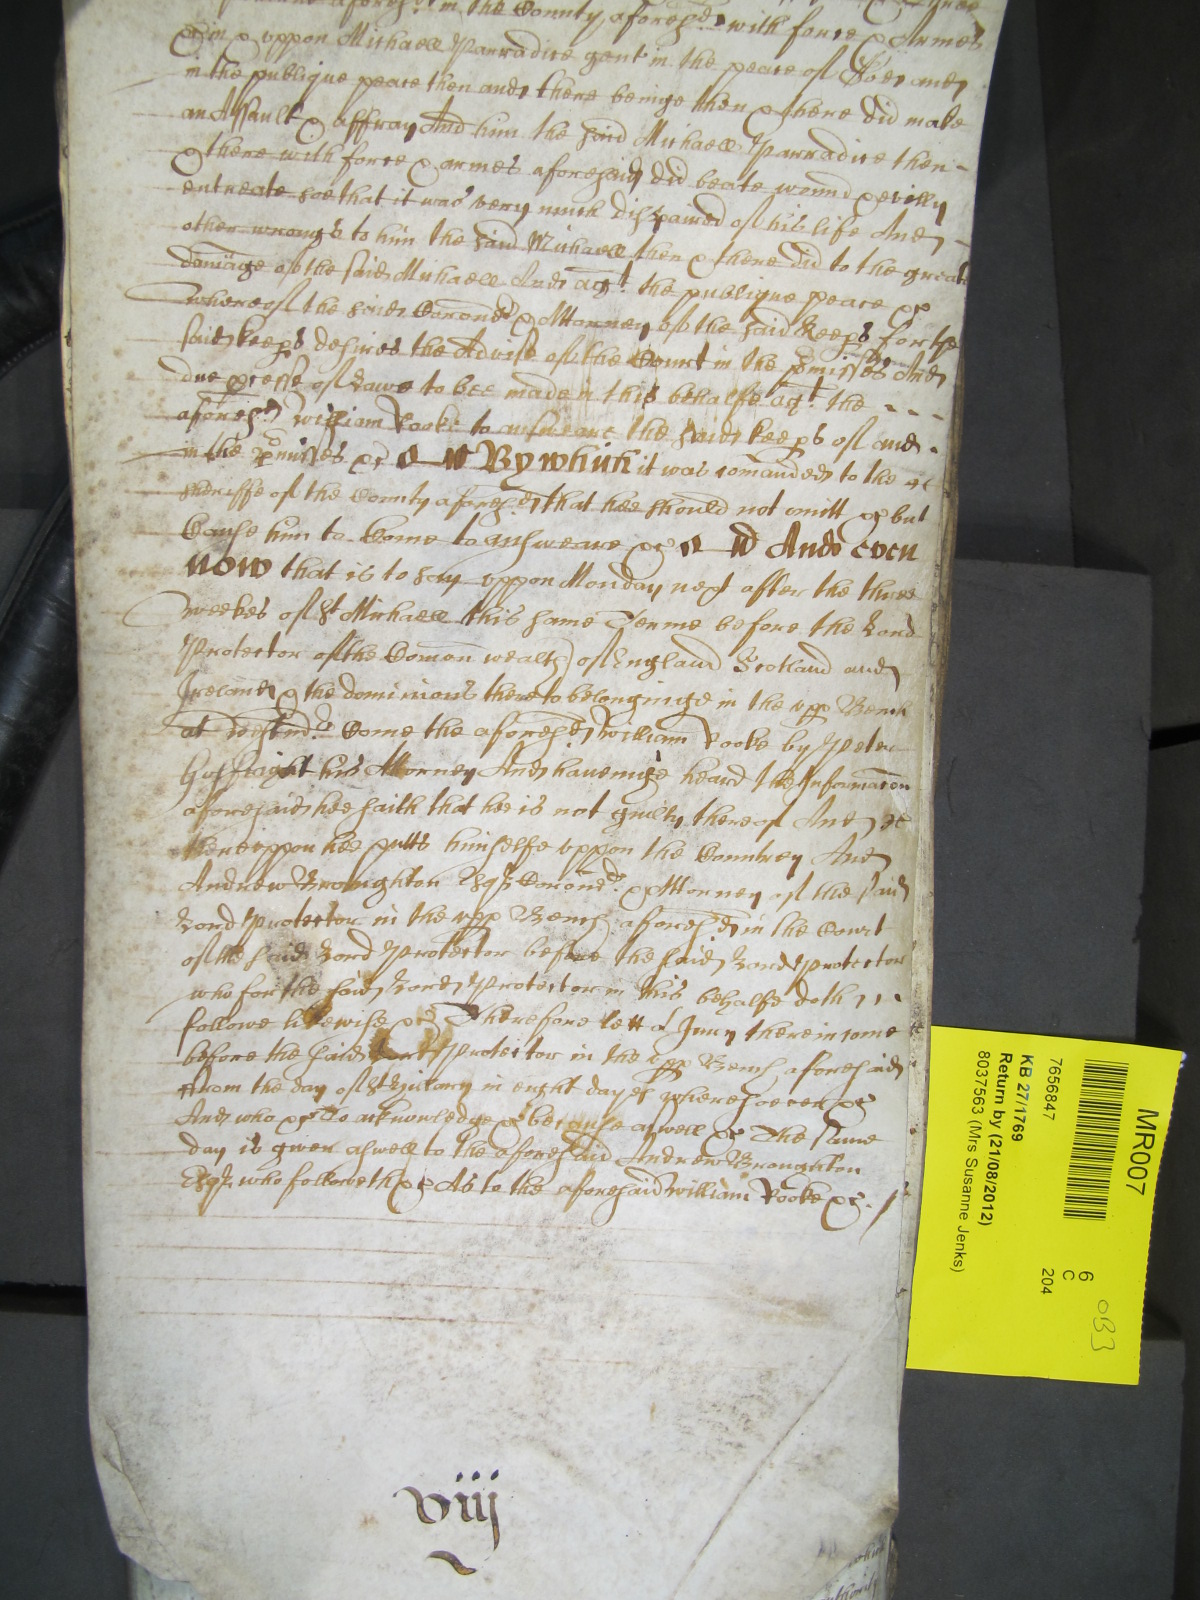 aforesd in the County aforesd with force & Armes
in & uppon Michaell Parradice gent in the peace of God and
in the publique peace then and there beinge then & there did make
an Assault & affray And him the said Michaell Parradice then
& there with force & armes aforesaid did beate wound & evilly
entreate soe that it was very much dispaired of his life And
other wrongs to him the said Michaell then & there did to the greate
damage of the said Michaell And agt the publique peace &c
whereof the said Coroner & Attorney of the said Keeps for the
said Keeps desires the Advise of the Court in the pmisses And
due pcesse of Lawe to bee made in this behalfe agt the
aforesd William Rooke to answeare the said Keeps of and
in the pmisses &c By which it was comanded to the
Sheriffe of the County aforesd that hee should not omitt &c but
Cause him to Come to answeare &c And even
now that is to say uppon Monday next after the three
weekes of St Michaell this same Terme before the Lord
Protector of the Comon wealth of England Scotland and
Ireland & the dominions thereto belonginge in the upp Bench
at Westmr Come the aforesd William Rooke by Peter
his Attorney And haveinge heard the Informacon
aforesaid hee saith that hee is not guilty thereof And
thereuppon hee putts himselfe uppon the Countrey And
Andrew Broughton Esqr Coroner & Attorney of the said
Lord Protector in the upp Bench aforesd in the Court
of the said Lord Protector before the said Lord Protector
who for the said Lord Protector in this behalfe doth
followe likewise &c Therefore lett a Jury therein come
before the said Lord Protector in the upp Bench aforesaid
from the day of St Hillary in eight dayes wheresoever &c
And who &c To acknowledge &c because aswell &c The same
day is given aswell to the aforesaid Andrew Broughton
Esqr who followeth &c As to the aforesaid William Rooke &c
viij
MR007
7656847
KB 27/1769
Return by (21/08/2012)
8037563 (Mrs Susanne Jenks)
6
C
204
OB3